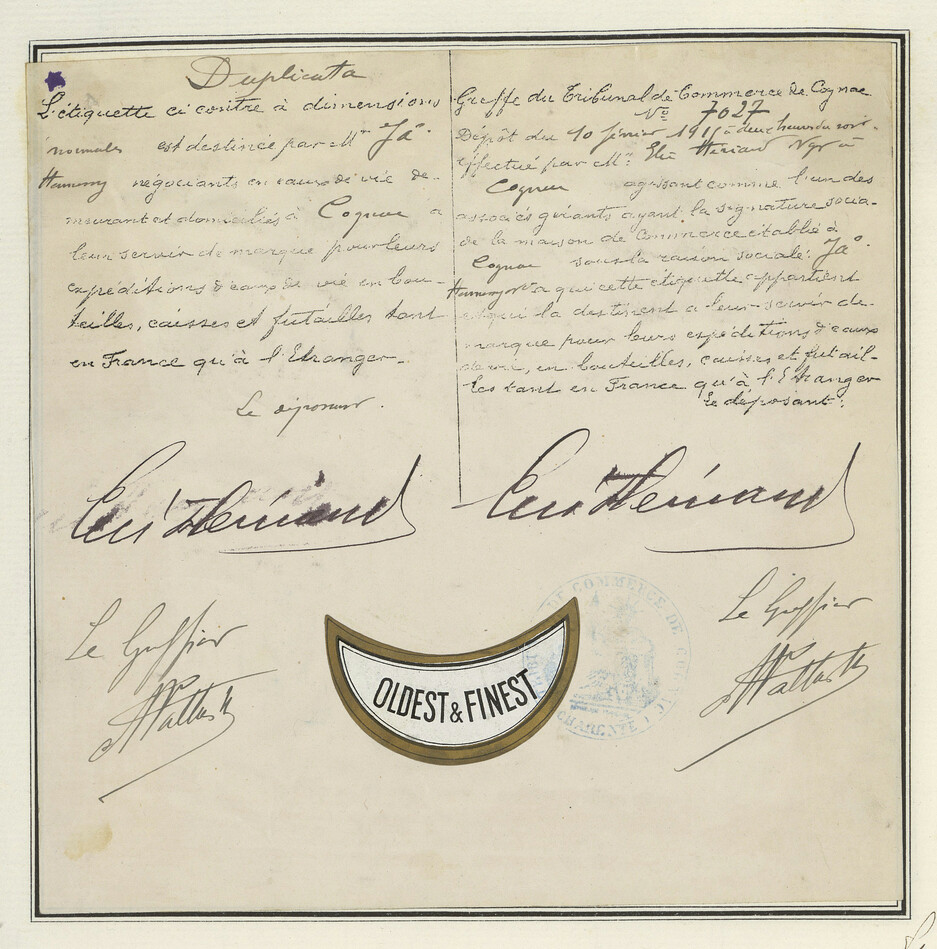 Duplicata
L'étiquette ci contre à dimensions
normales est destinée par Mrs Jas
Hennessy négociants en eaux de vie de-
meurant et domiciliés à Cognac à
leur servir de marque pour leurs
expéditions d'eaux de vie en bou-
teilles, caisses et futailles tant
en France qu'à l'Etranger.
Le déposant.
Greffe du Tribunal de Commerce de Cognac
No 7027
Dépôt du 10 février à deux heures du soir
effectué par Mr: Hériard Ngt à
Cognac agissant comme l'un des
associés gérants ayant la signature socia-
de la maison de Commerce établie à
Cognac sous la raison sociale: Jas
Hennessy à qui cette étiquette appartient
et qui la destinent à leur servir de
marque pour leurs expéditions d'eaux
de vie, en bouteilles, caisses et futail-
les tant en France qu'à l'Etranger
Le déposant:
Hériard
Hériard
Le Greffier
Le Greffier
OLDEST & FINEST
DE COMMERCE DE
CHARENTE